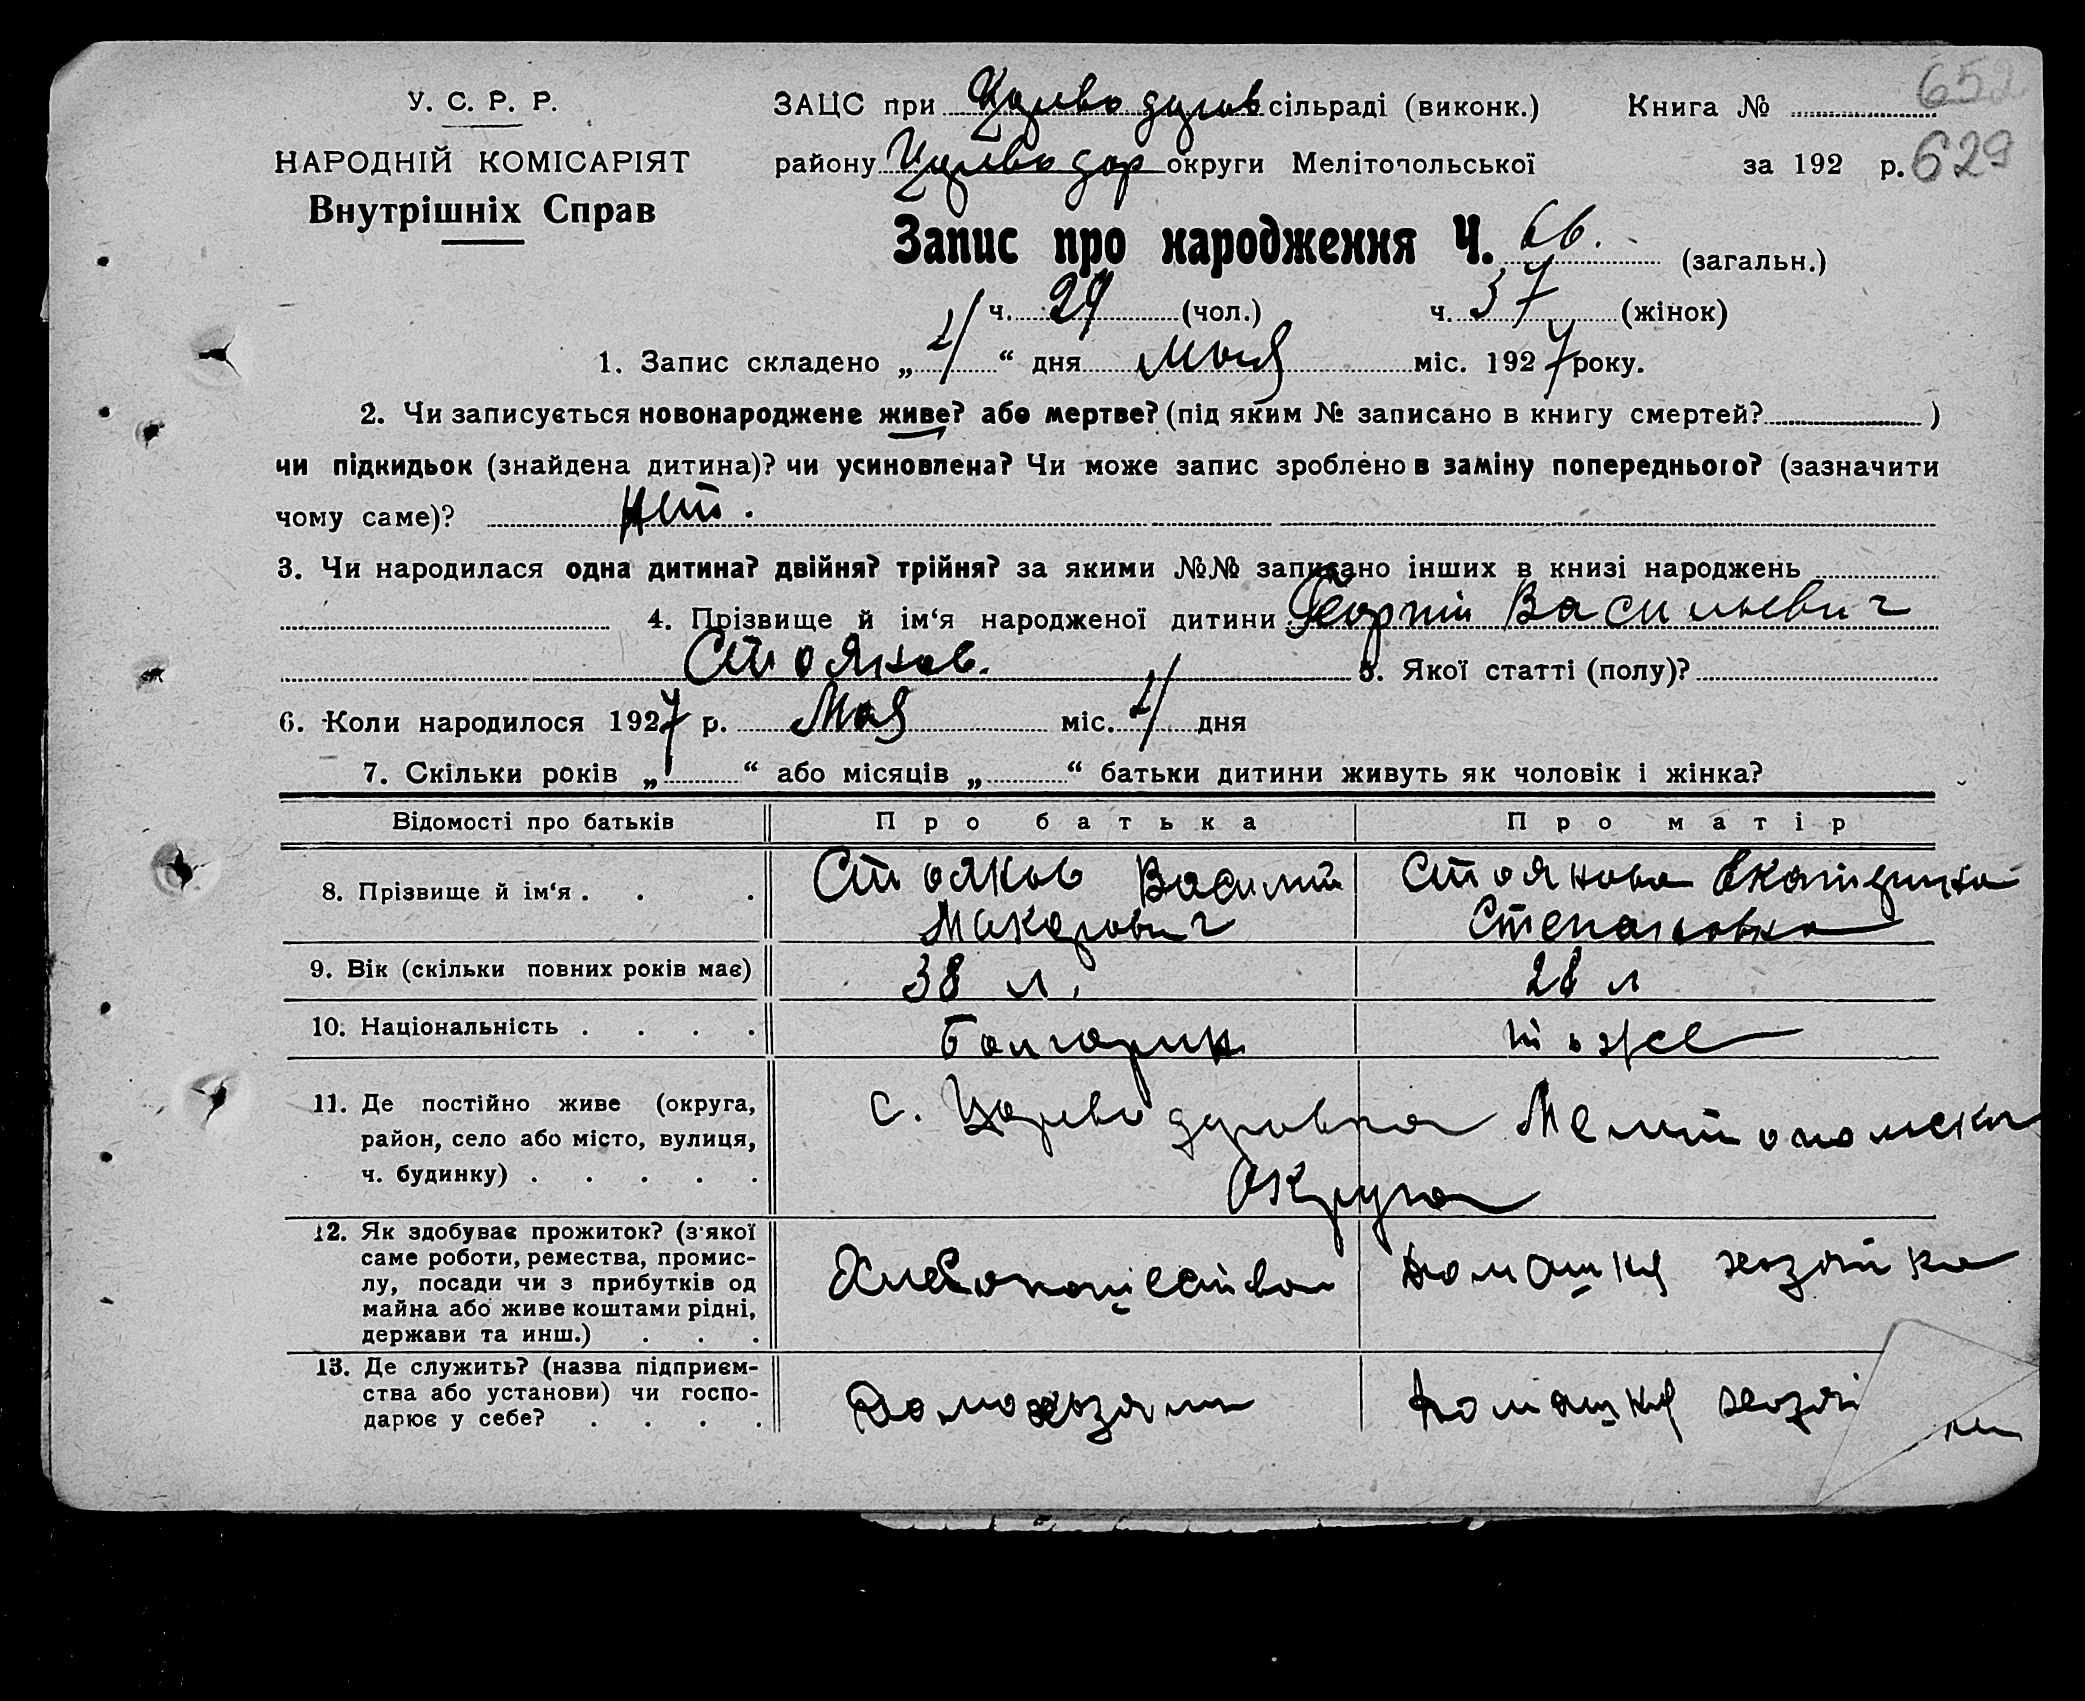 652
У. С. Р. Р.
ЗАЦС при Цареводаров сільраді (виконк.) Книга №
629
НАРОДНІЙ КОМІСАРІЯТ
району Цареводар округи Мелітопольської за 192 р.
Внутрішніх Справ
Запис про народження Ч. 66. (загальн.)
ч. 29 (чол.) ч. 37 (жінок)
1. Запис складено „ 4 “ дня Мая міс. 1927 року.
2. Чи записується новонароджене живе? або мертве? (під яким № записано в книгу смертей? )
чи підкидьок (знайдена дитина)? чи усиновлена? Чи може запис зроблено в заміну попереднього? (зазначити
чому саме)? Нет.
3. Чи народилася одна дитина? двійня? трійня? за якими №№ записано інших в книзі народжень
4. Прізвище й ім‘я народженої дитини Георгий Васильевич
Стоянов. 5. Якої статті (полу)?
6. Коли народилося 1927 р. Мая міс. 4 дня
7. Скільки років „ “ або місяців „ “ батьки дитини живуть як чоловік і жінка?
Відомості про батьків Про батька Про матір
8. Прізвище й ім‘я . . . Стоянов Василий Стоянова Екатерина
Макарович Степановна
9. Вік (скільки повних років має) 38 л. 28 л
10. Національність . . . . Болгарин тоже
11. Де постійно живе (округа,
район, село або місто, вулиця,
ч. будинку) . . . . .
с. Цареводаровка Мелитопольска
Округа
12. Як здобуває прожиток? (з'якої
саме роботи, ремества, промис-
лу, посади чи з прибутків од
майна або живе коштами рідні,
держави та инш.) . . .
Хлебопашество Домашня хозяйка
13. Де служить? (назва підприєм-
ства або установи) чи госпо-
дарює у себе? . . . .
Домохозяин Домашня хозяй